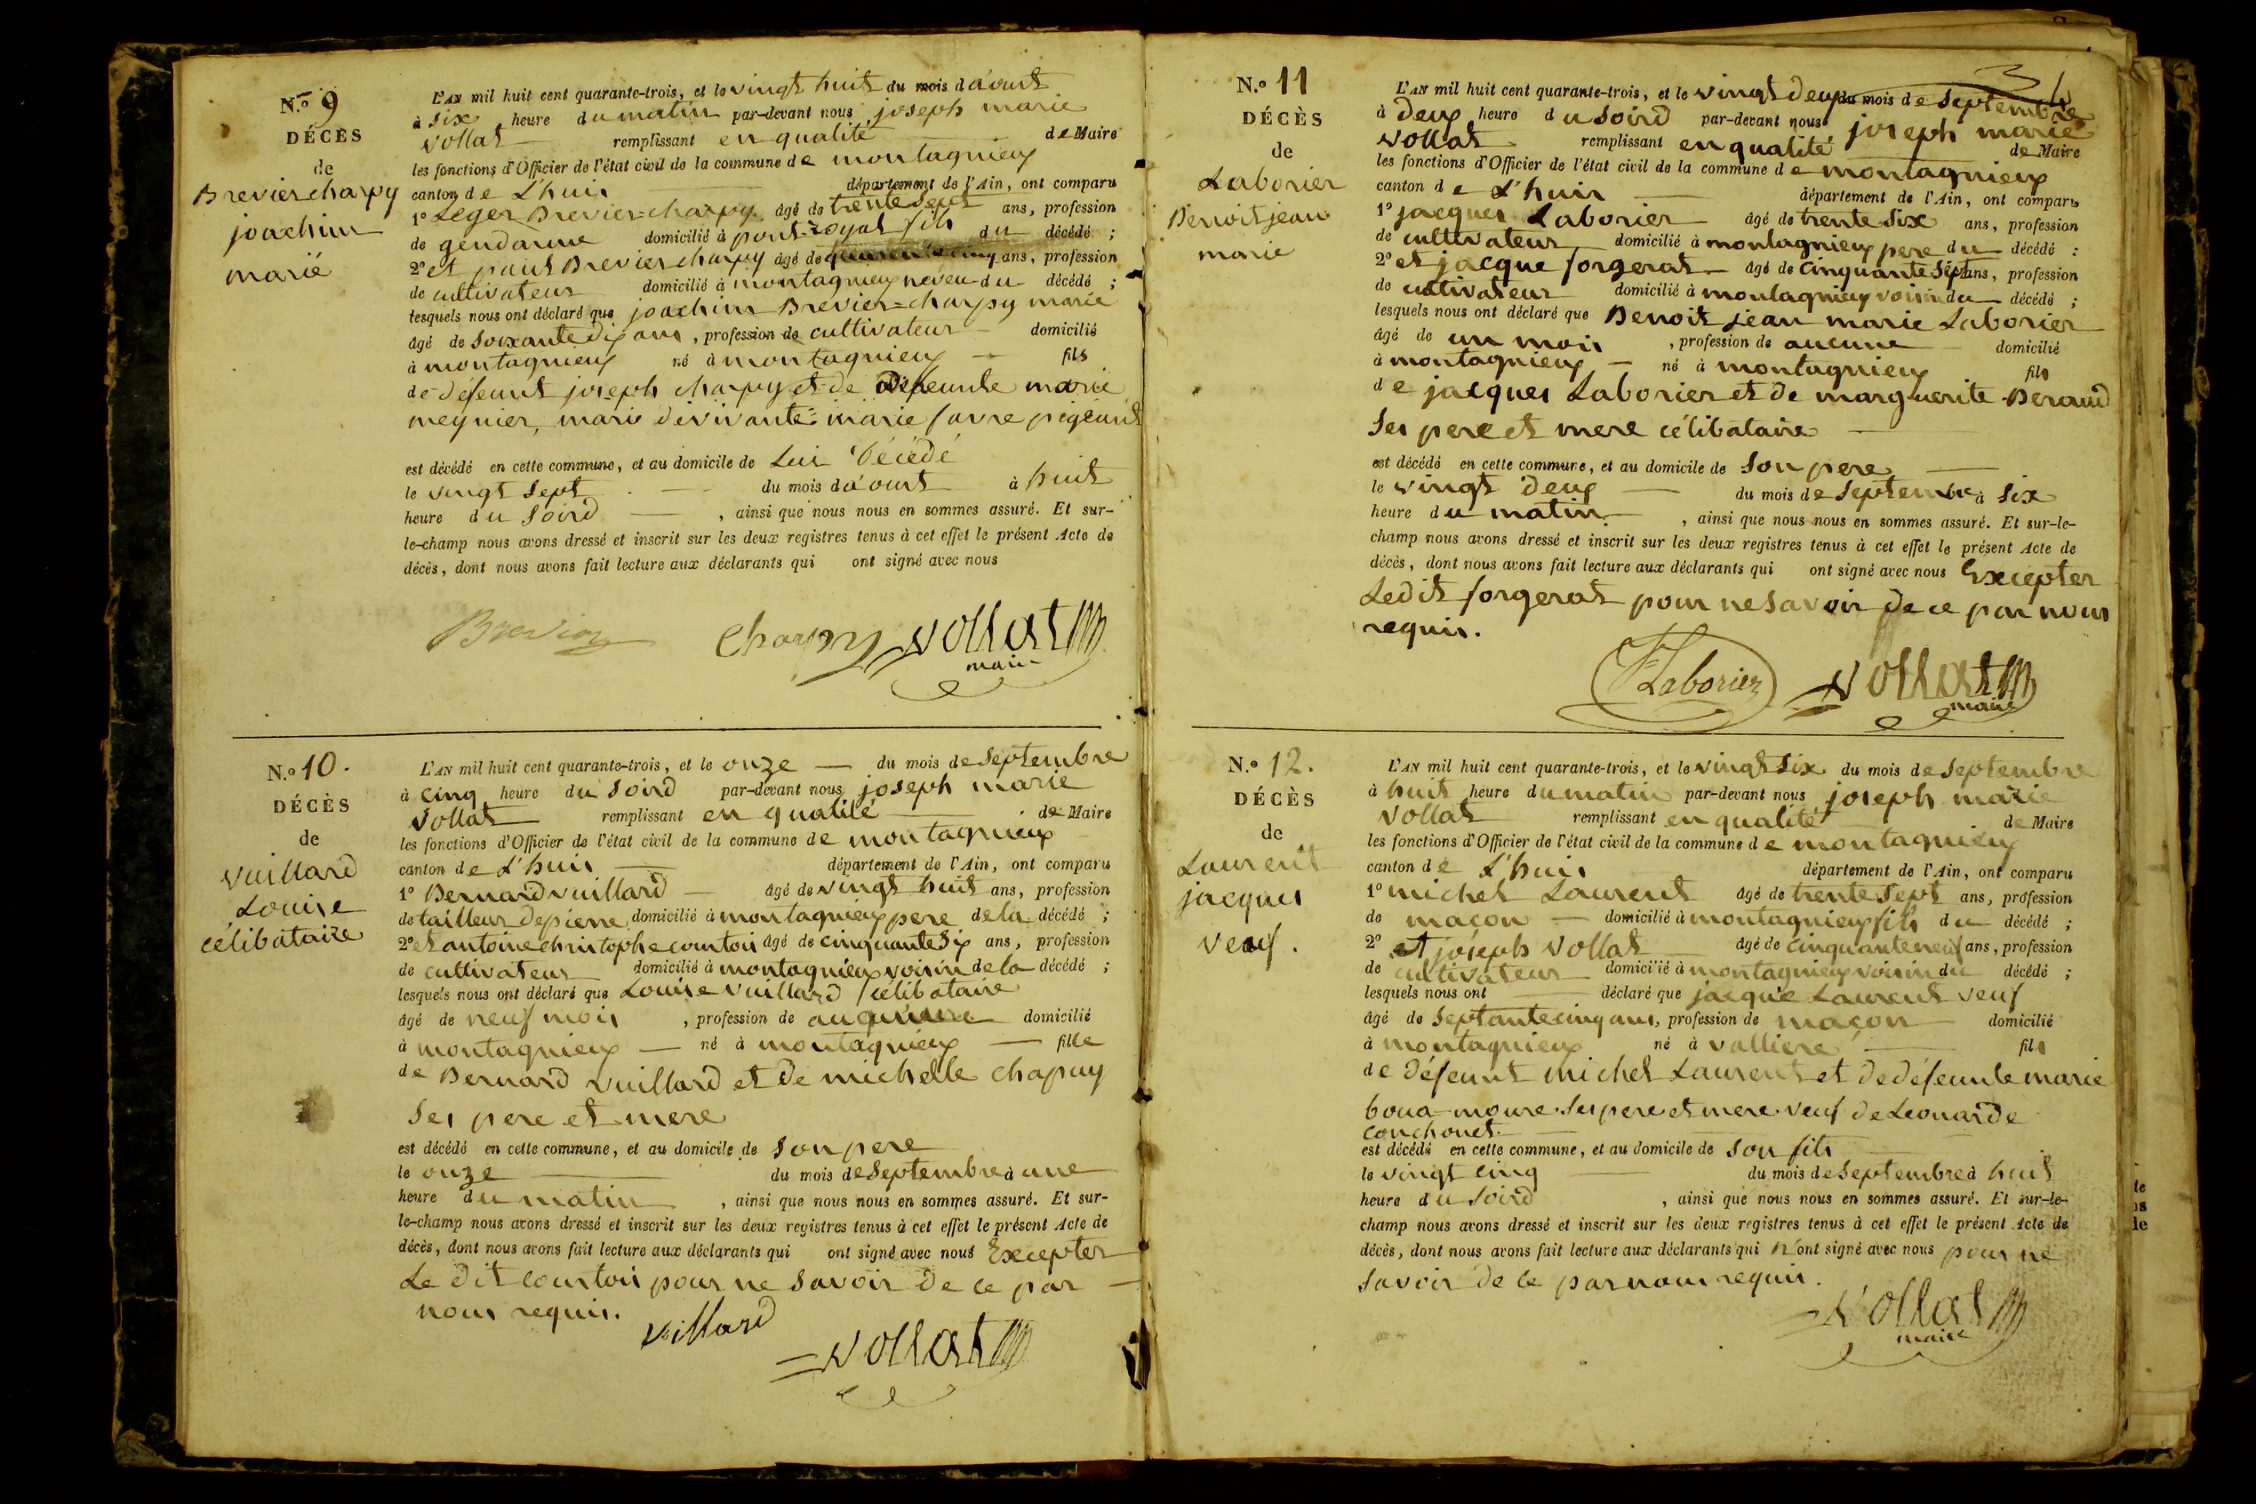 N.o 9
DÉCÈS
de
Brevier charpy
joachim
marié
L'AN mil huit cent quarante-trois, et le vingt huit du mois d'avout
à six heure du matin par-devant nous joseph marie
vollat remplissant en qualité de Maire
les fonctions d'Officier de l'état civil de la commune de montagnieux
canton de L'huis département de l'Ain, ont comparu
1o Leger Brevier=charpy âgé de trente sept ans, profession
de gendarme domicilié à pont-royal fils du décédé ;
2o et paul Brevier charpy âgé de quarente cinq ans, profession
de cultivateur domicilié à montagnieux neveu du décédé ;
lesquels nous ont déclaré que joachim Brevier=charpy marié
âgé de soixante dix ans, profession de cultivateur domicilié
à montagnieux né à montagnieux fils
de défeunt joseph charpy et de défeunte marie
meynier, mari de vivante marie favre pigeaud
est décédé en cette commune, et au domicile de Lui Décédé
le vingt sept du mois d'avout à huit
heure du soird, ainsi que nous nous en sommes assuré. Et sur-
le-champ nous avons dressé et inscrit sur les deux registres tenus à cet effet le présent Acte de
décès, dont nous avons fait lecture aux déclarants qui ont signé avec nous
Brevier Charpy vollat
maire
N.o 10.
DÉCÈS
de
vuillard
Louise
célibataire
L'AN mil huit cent quarante-trois, et le onze du mois de septembre
à cinq heure du soird par-devant nous joseph marie
vollat remplissant en qualité de Maire
les fonctions d'Officier de l'état civil de la commune de montagnieux
canton de L'huis département de l'Ain, ont comparu
1o Bernard vuillard âgé de vingt huit ans, profession
de tailleur de pierre domicilié à montagnieux pere de la décédé ;
2o et antoine christophe courtois âgé de cinquante six ans, profession
de cultivateur domicilié à montagnieux voisin de la décédé ;
lesquels nous ont déclaré que Louise vuillard célibataire
âgé de neuf mois, profession de domicilié
à montagnieux né à montagnieux fille
de Bernard vuillard et de michelle chapuy
ses pere et mere
est décédé en cette commune, et au domicile de son pere
le onze du mois de septembre à une
heure du matin, ainsi que nous nous en sommes assuré. Et sur-
le-champ nous avons dressé et inscrit sur les deux registres tenus à cet effet le présent Acte de
décès, dont nous avons fait lecture aux déclarants qui ont signé avec nous Excepter
Le dit courtois pour ne savoir de ce par
nous requis.
villard
vollat
N.o 11
DÉCÈS
de
Laborier
Benoit jean
marie
L'AN mil huit cent quarante-trois, et le vingt deux du mois de septembre
à deux heure du soird par-devant nous joseph marie
vollat remplissant en qualité de Maire
les fonctions d'Officier de l'état civil de la commune de montagnieux
canton de L'huis département de l'Ain, ont comparu
1o jacques Laborier âgé de trente six ans, profession
de cultivateur domicilié à montagnieux pere du décédé ;
2o et jacque forgerat âgé de cinquante sept ans, profession
de cultivateur domicilié à montagnieux voisin du décédé ;
lesquels nous ont déclaré que Benoit jean marie Laborier
âgé de un mois, profession de aucune domicilié
à montagnieux né à montagnieux fils
de jacques Laborier et de marguerite Beraud
ses pere et mere célibataire
est décédé en cette commune, et au domicile de son pere
le vingt deux du mois de septembre à six
heure du matin, ainsi que nous nous en sommes assuré. Et sur-le-
champ nous avons dressé et inscrit sur les deux registres tenus à cet effet le présent Acte de
décès, dont nous avons fait lecture aux déclarants qui ont signé avec nous Excepter
Ledit forgerat pour ne savoir de ce par nous
requis.
Laborier vollat
maire
N.o 12.
DÉCÈS
de
Laurent
jacques
veuf.
L'AN mil huit cent quarante-trois, et le vingt six du mois de septembre
à huit heure du matin par-devant nous joseph marie
vollat remplissant en qualité de Maire
les fonctions d'Officier de l'état civil de la commune de montagnieux
canton de L'huis département de l'Ain, ont comparu
1o michel Laurent âgé de trente sept ans, profession
de maçon domicilié à montagnieux fils du décédé ;
2o et joseph vollat âgé de cinquante neuf ans, profession
de cultivateur domicilié à montagnieux voisin du décédé ;
lesquels nous ont déclaré que jacque Laurent veuf
âgé de septante cinq ans, profession de maçon domicilié
à montagnieux né à valliere fils
de défeunt michel Laurent et de défeunte marie
boua-moure ses pere et mere veuf de Leonarde
conchouet
est décédé en cette commune, et au domicile de son fils
le vingt cinq du mois de septembre à huit
heure du soird, ainsi que nous nous en sommes assuré. Et sur-le-
champ nous avons dressé et inscrit sur les deux registres tenus à cet effet le présent Acte de
décès, dont nous avons fait lecture aux déclarants qui n'ont signé avec nous pour ne
savoir de ce par nous requis.
vollat
maire